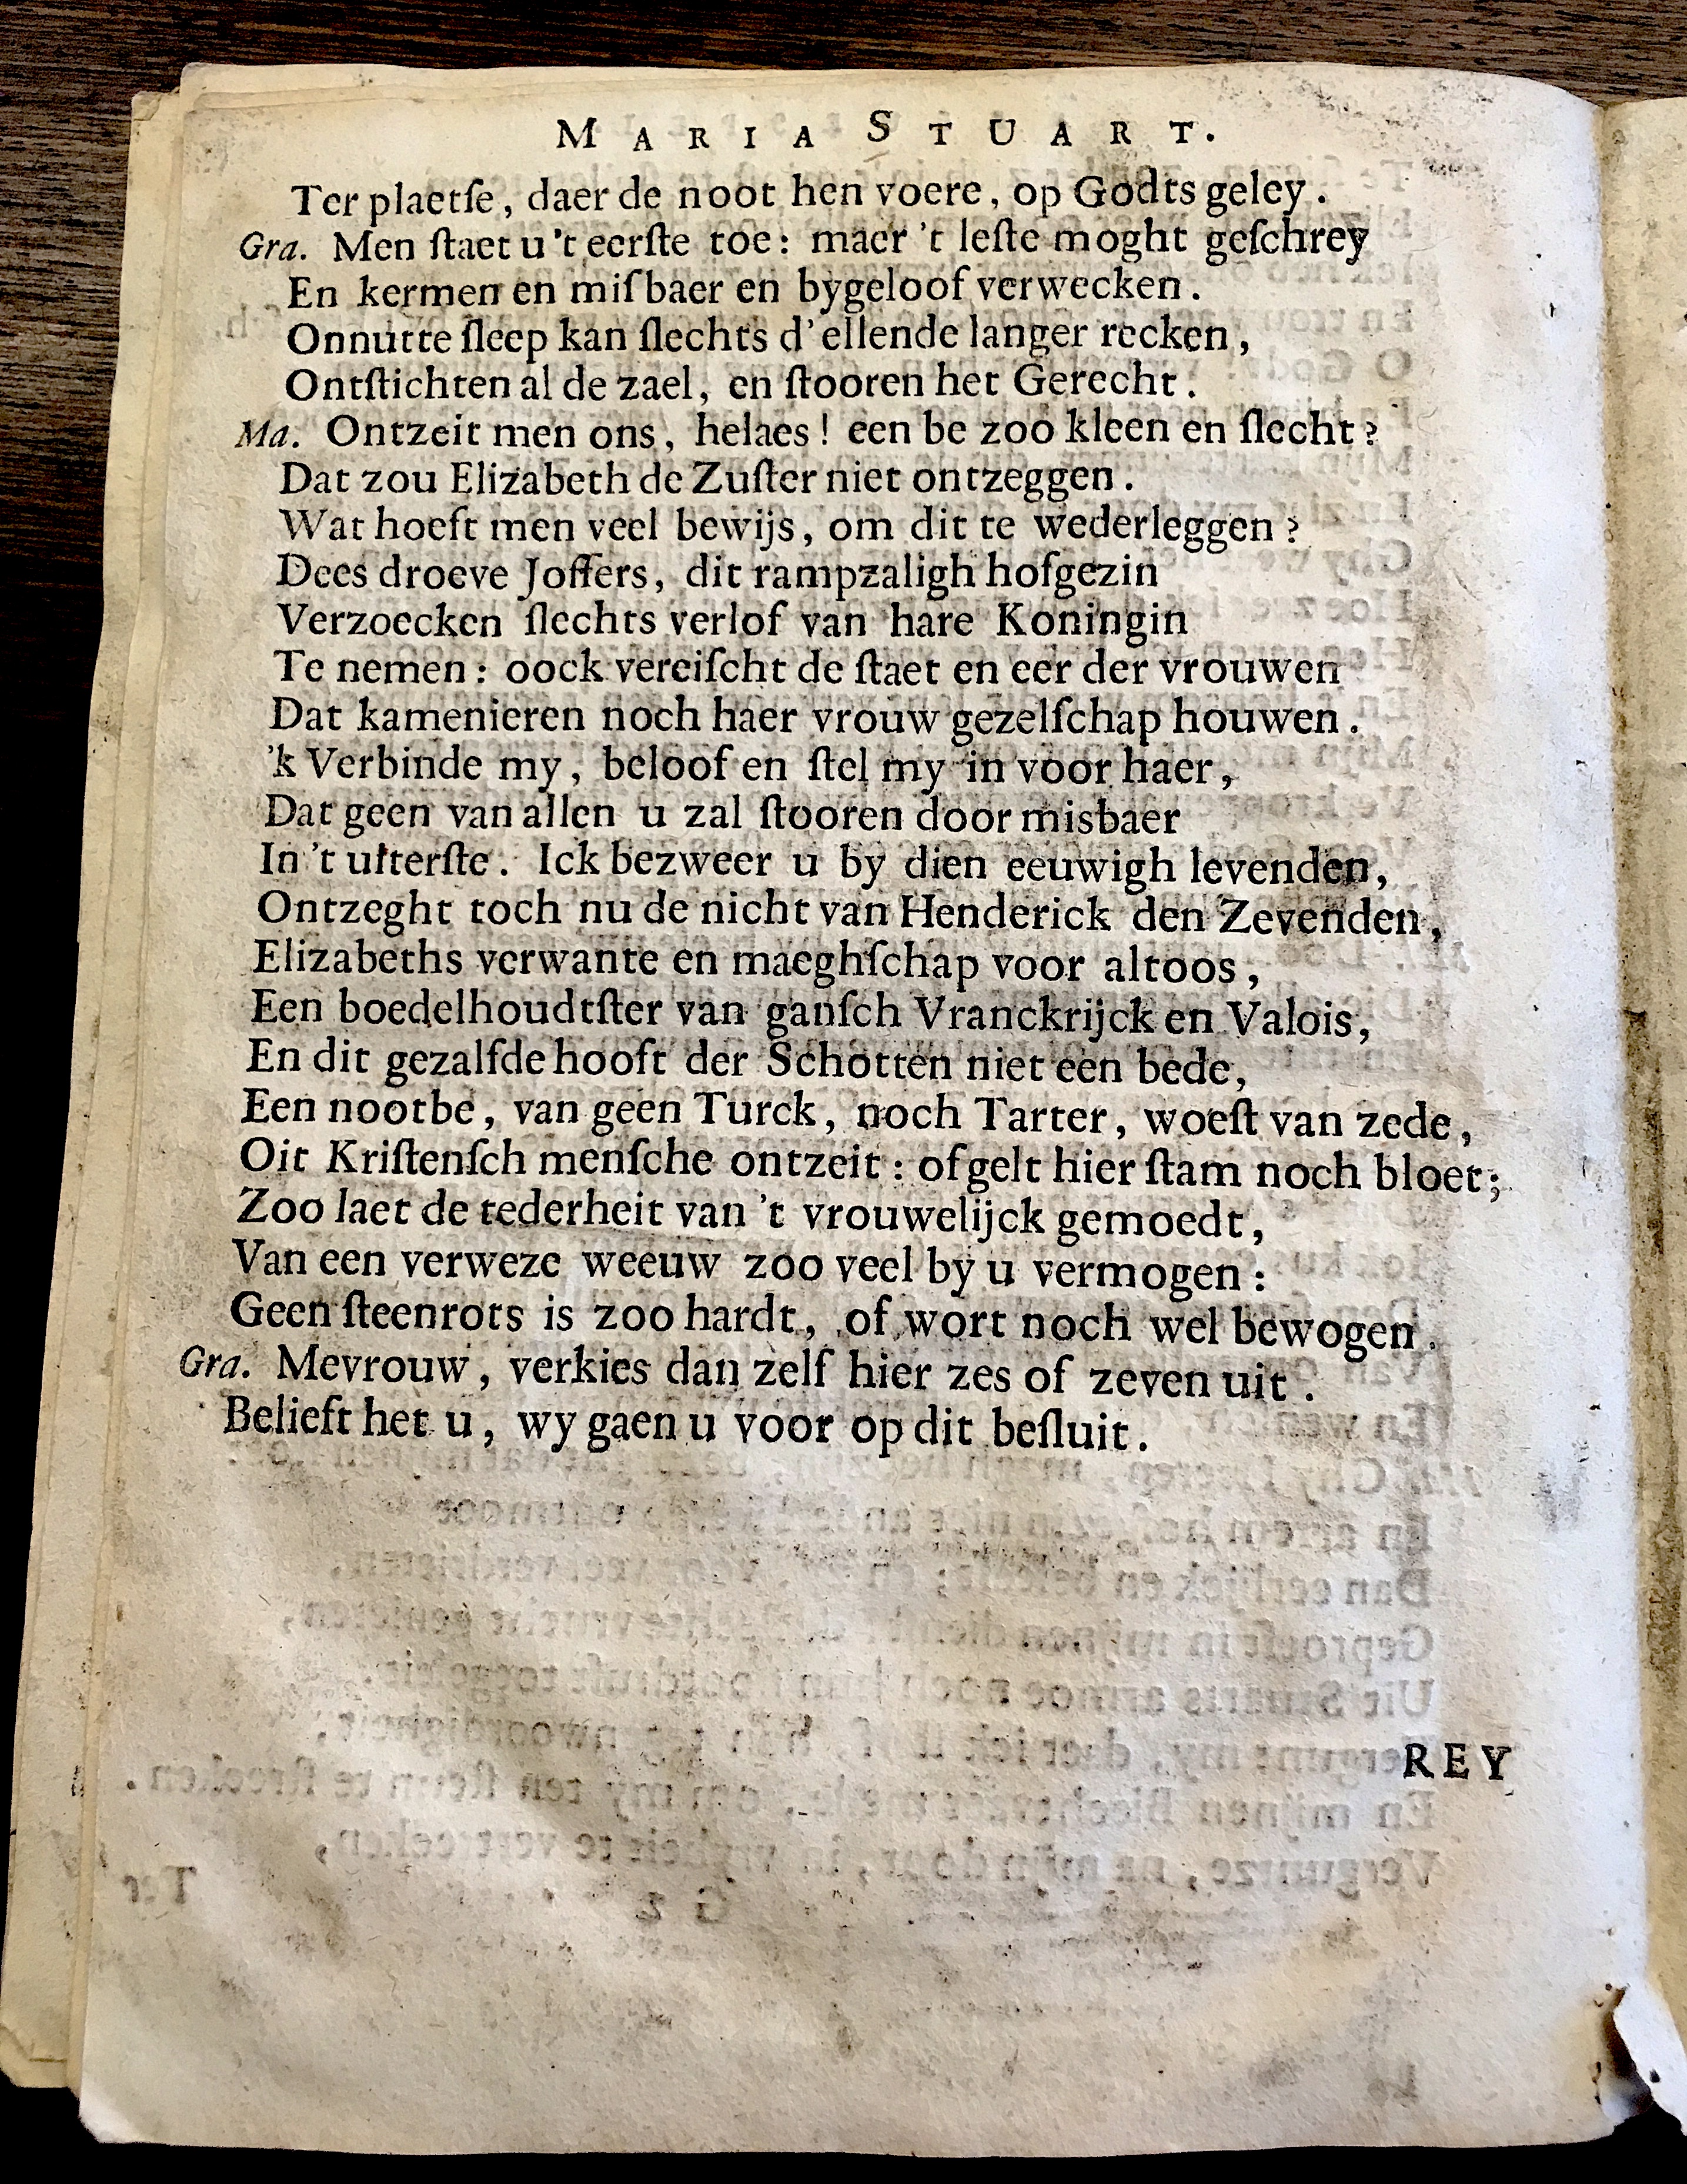 MARIA STUART.
Ter plaetſe, daer de noot hen voere, op Godts geley.
Gra. Men ſtaet u 't eerſte toe: maer 't leſte moght geſchrey
En kermen en miſbaer en bygeloof verwecken.
Onnutte ſleep kan ſlechts d'ellende langer recken,
Ontſtichten al de zael, en ſtooren het Gerecht.
Ma. Ontzeit men ons, helaes! een be zoo kleen en ſlecht?
Dat zou Elizabeth de Zuſter niet ontzeggen.
Wat hoeft men veel bewijs, om dit te wederleggen?
Dees droeve Joffers, dit rampzaligh hofgezin
Verzoecken ſlechts verlof van hare Koningin
Te nemen: oock vereiſcht de ſtaet en eer der vrouwen
Dat kamenieren noch haer vrouw gezelſchap houwen.
'k Verbinde my, beloof en ſtel my in voor haer,
Dat geen van allen u zal ſtooren door misbaer
In 't uiterſte. Ick bezweer u by dien eeuwigh levenden,
Ontzeght toch nu de nicht van Henderick den Zevenden,
Elizabeths verwante en maeghſchap voor altoos,
Een boedelhoudtſter van ganſch Vranckrijck en Valois,
En dit gezalfde hooft der Schotten niet een bede,
Een nootbe, van geen Turck, noch Tarter, woeſt van zede,
Oit Kriſtenſch menſche ontzeit: of gelt hier ſtam noch bloet;
Zoo laet de tederheit van 't vrouwelijck gemoedt,
Van een verweze weeuw zoo veel by u vermogen:
Geen ſteenrots is zoo hardt, of wort noch wel bewogen.
Gra. Mevrouw, verkies dan zelf hier zes of zeven uit.
Belieft het u, wy gaen u voor op dit beſluit.
REY